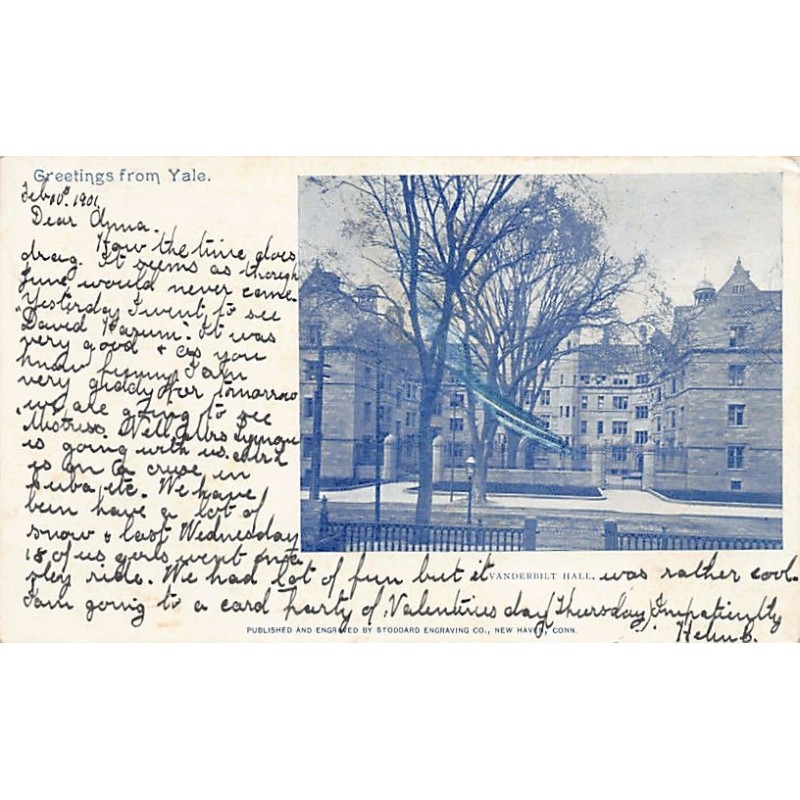 Greetings from Yale.
Feb 10th 1901
Dear Anna.
How the time does
drag. It seems as though
June would never come.
Yesterday I went to see
"David Harum". It was
very good & as you
know funny I am
very giddy for tomorrow
we are going to see
Mistress. Nell Mrs
is going with us.
is on a cruse in
Cuba, etc. We have
been have a lot of
snow & last Wednesday
18 of us girls went on a
sley ride. We had lot of fun but it was rather cool.
VANDERBILT HALL.
I am going to a card party of Valentines day (Thursday) Impatiently
PUBLISHED AND ENGRAVED BY STODDARD ENGRAVING CO., NEW HAVEN, CONN.